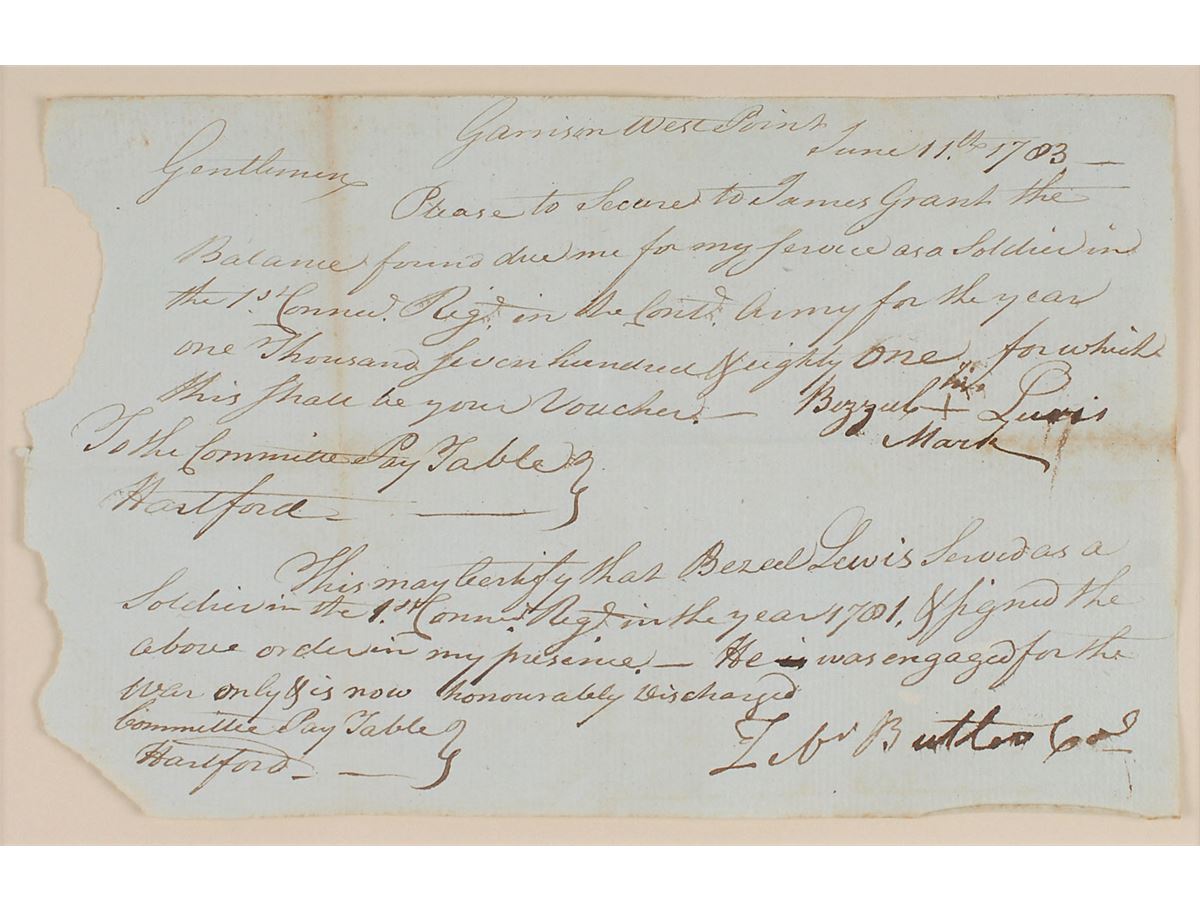 Garrison West Point
June 11.th 1783 —
Gentlemen
Please to Secure to James Grant the
Balance found due me for my Service as a Soldier in
the 1.st Connec.t Reg.t in the Cont.l Army for the year
one Thousand Seven hundred & eighty one for which
this Shall be your Voucher. —
his
Bezzel + Lewis
Mark
To the Committee Pay Table }
Hartford — ——
This may Certify that Bezeel Lewis Served as a
Soldier in the 1.st Connec.t Reg.t in the year 1781, & Signed the
above order in my presence. — He was engaged for the
War only & is now honourably discharged
Committee Pay Table }
Hartford — —
Zebn Butler Col